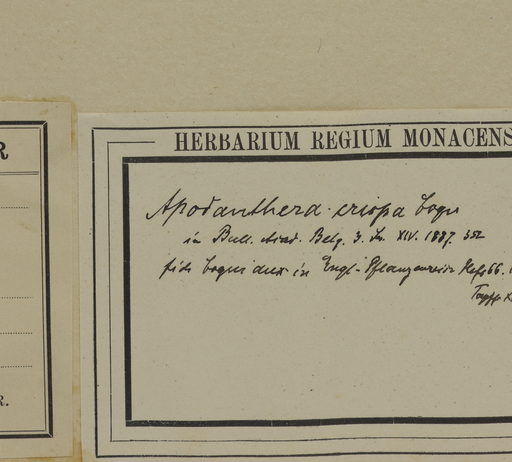 R
HERBARIUM REGIUM MONACENS
Apodanthera crispa Cogn
in Bull. Acad. Belg. 3. Sr. XIV. 1887. 352
fide Cogniaux in Engl. Pflanzenreich Heft 66.
R.